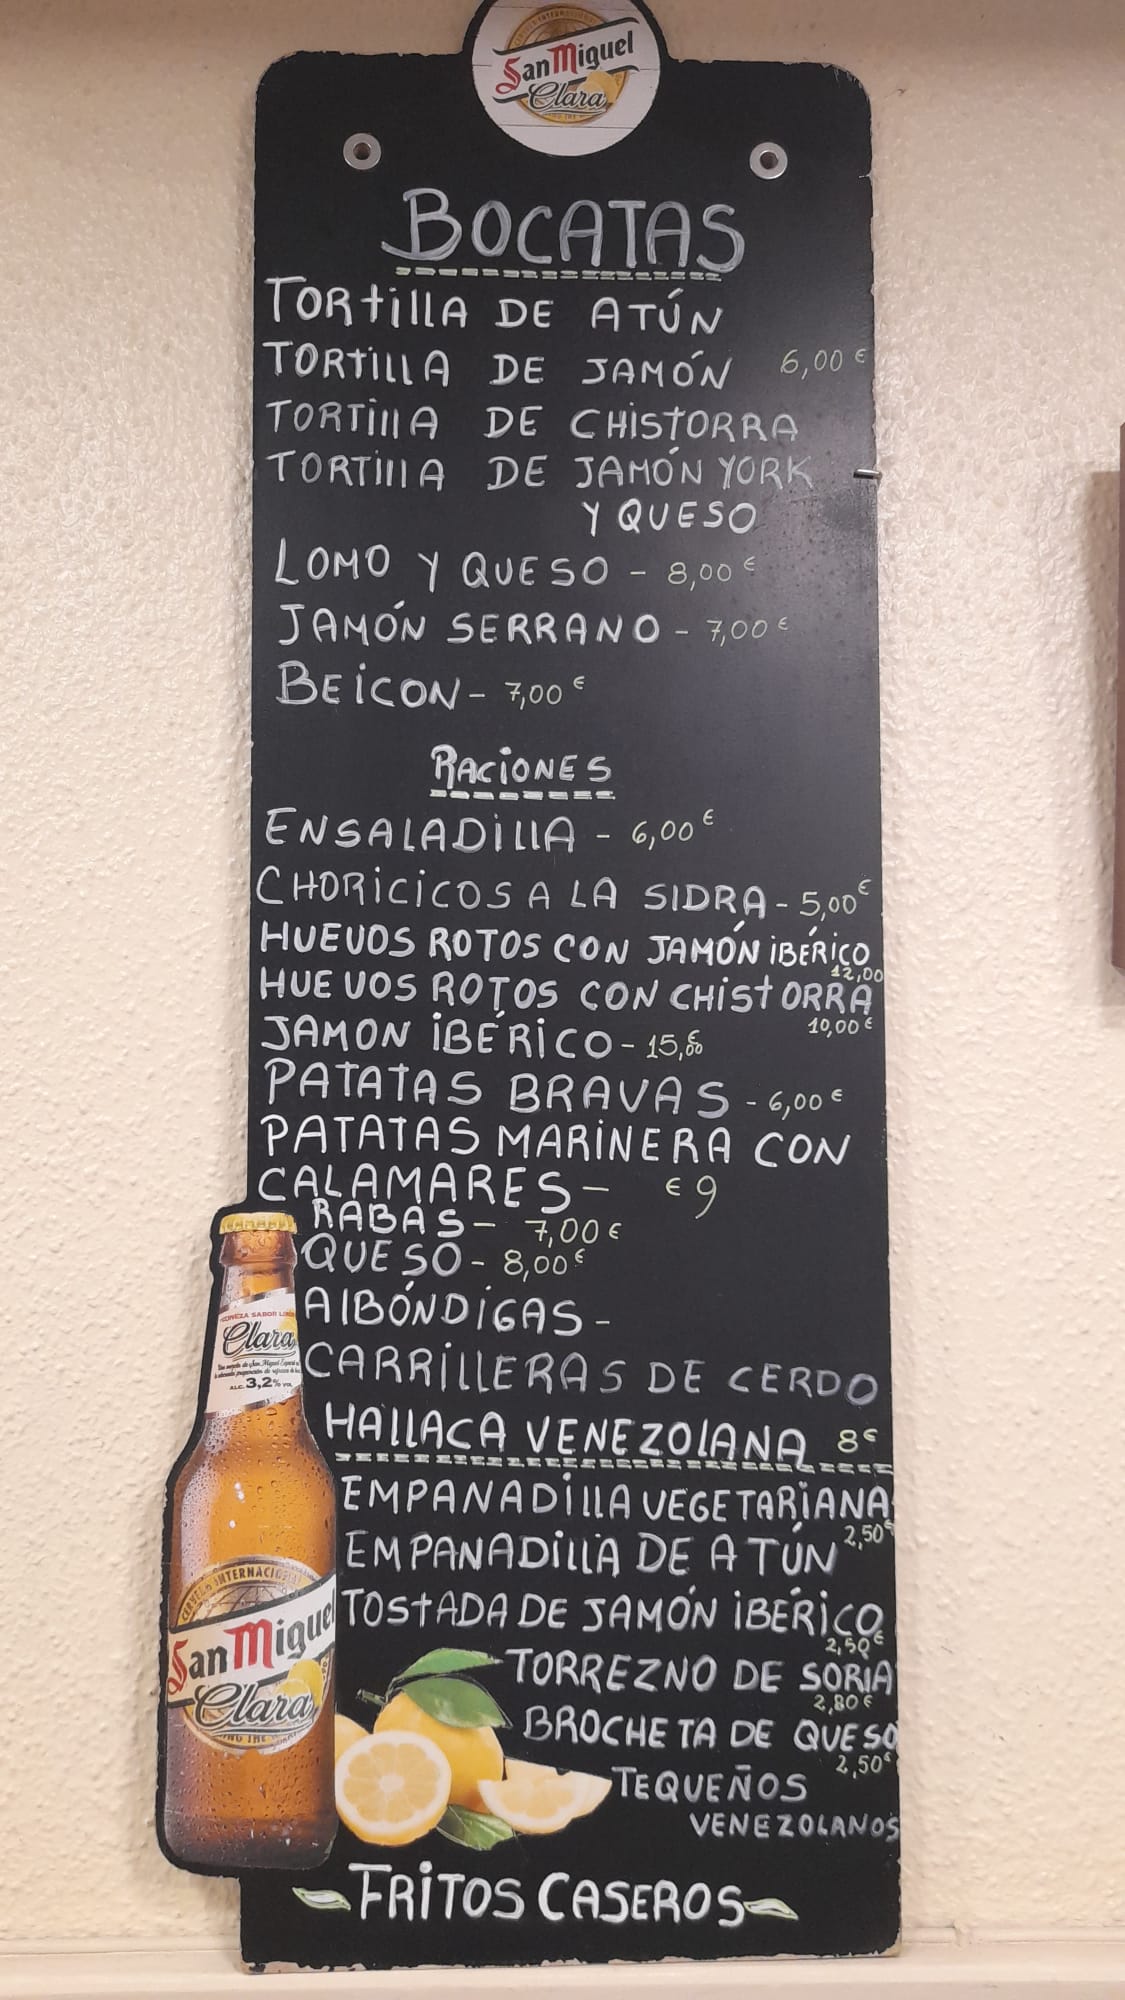 San Miguel
Clara
BOCATAS
TORTILLA DE ATÚN
TORTILLA DE JAMÓN 6,00 €
TORTILLA DE CHISTORRA
TORTILLA DE JAMÓN YORK
Y QUESO
LOMO Y QUESO - 8,00 €
JAMÓN SERRANO - 7,00 €
BEICON - 7,00 €
RACIONES
ENSALADILLA - 6,00 €
CHORICICOS A LA SIDRA - 5,00 €
HUEVOS ROTOS CON JAMÓN IBÉRICO
12,00
HUEVOS ROTOS CON CHISTORRA
10,00 €
JAMON IBÉRICO - 15,00 €
PATATAS BRAVAS - 6,00 €
PATATAS MARINERA CON
CALAMARES - € 9
RABAS - 7,00 €
QUESO - 8,00 €
ALBÓNDIGAS -
CARRILLERAS DE CERDO
HALLACA VENEZOLANA 8 €
EMPANADILLA VEGETARIANA
2,50 €
EMPANADILLA DE ATÚN
TOSTADA DE JAMÓN IBÉRICO
2,50 €
TORREZNO DE SORIA
2,80 €
BROCHETA DE QUESO
2,50 €
TEQUEÑOS
VENEZOLANOS
FRITOS CASEROS
CERVEZA SABOR LIMÓN
Clara
ALC. 3,2% VOL
CERVEZA INTERNACIONAL
San Miguel
Clara